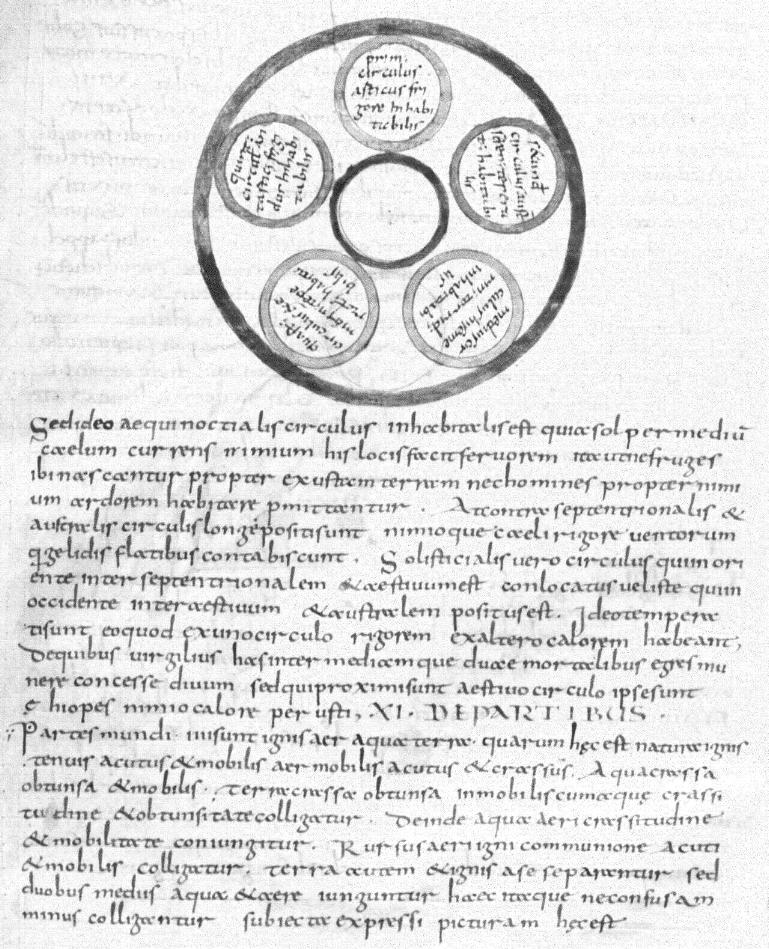 prim:
circulus
arcticus fri
gore inhabi
tabilis
circulus
habitabi
lis
medius cir
inhabitabi
lis
circulus
habita
bilis
quint:
circul: an
tarticus frigi
dor inhabi
tabilis
Sed ideo aequinoctialis circulus inhabitalis est quia sol per mediū
caelum currens nimium his locis facit fervorem ita ut nec fruges
ibi nascantur propter exustam terram nec homines propter nimi
um ardorem habitare pmittantur. At contra septentrionalis &
australis circulis longe positi sunt nimioque caeli rigore ventorum
q; gelidis flatibus contabiscunt. Solisticialis vero circulus qui in ori
ente inter septentrionalem & aestivum est conlocatus vel iste qui in
occidente inter aestivum & australem positus est. Ideo tempera
ti sunt eo quod ex uno circulo rigorem ex altero calorem habeant,
De quibus virgilius has inter mediamque duae mortalibus egris mu
nere concesse divum sed qui proximi sunt aestivo circulo ipse sunt
ęthiopes nimio calore per usti, XI. DE PARTIBUS.
Partes mundi iiii sunt ignis aer aqua terra. quarum hęc est natura ignis
tenuis acutus & mobilis aer mobilis acutus & crassus. Aqua crassa
obtunsa & mobilis. Terra crassa obtunsa inmobilis cum aque crassi
tudine & obtunsitate colligatur. Deinde aqua aeri crassitudine
& mobilitate coniungitur. Rursus aer igni communione acuti
& mobilis colligatur. terra autem & ignis a se separantur sed
duobus mediis aqua & aere iunguntur haec itaque ne confusam
minus colligantur subiecta expressi picturam hęc est